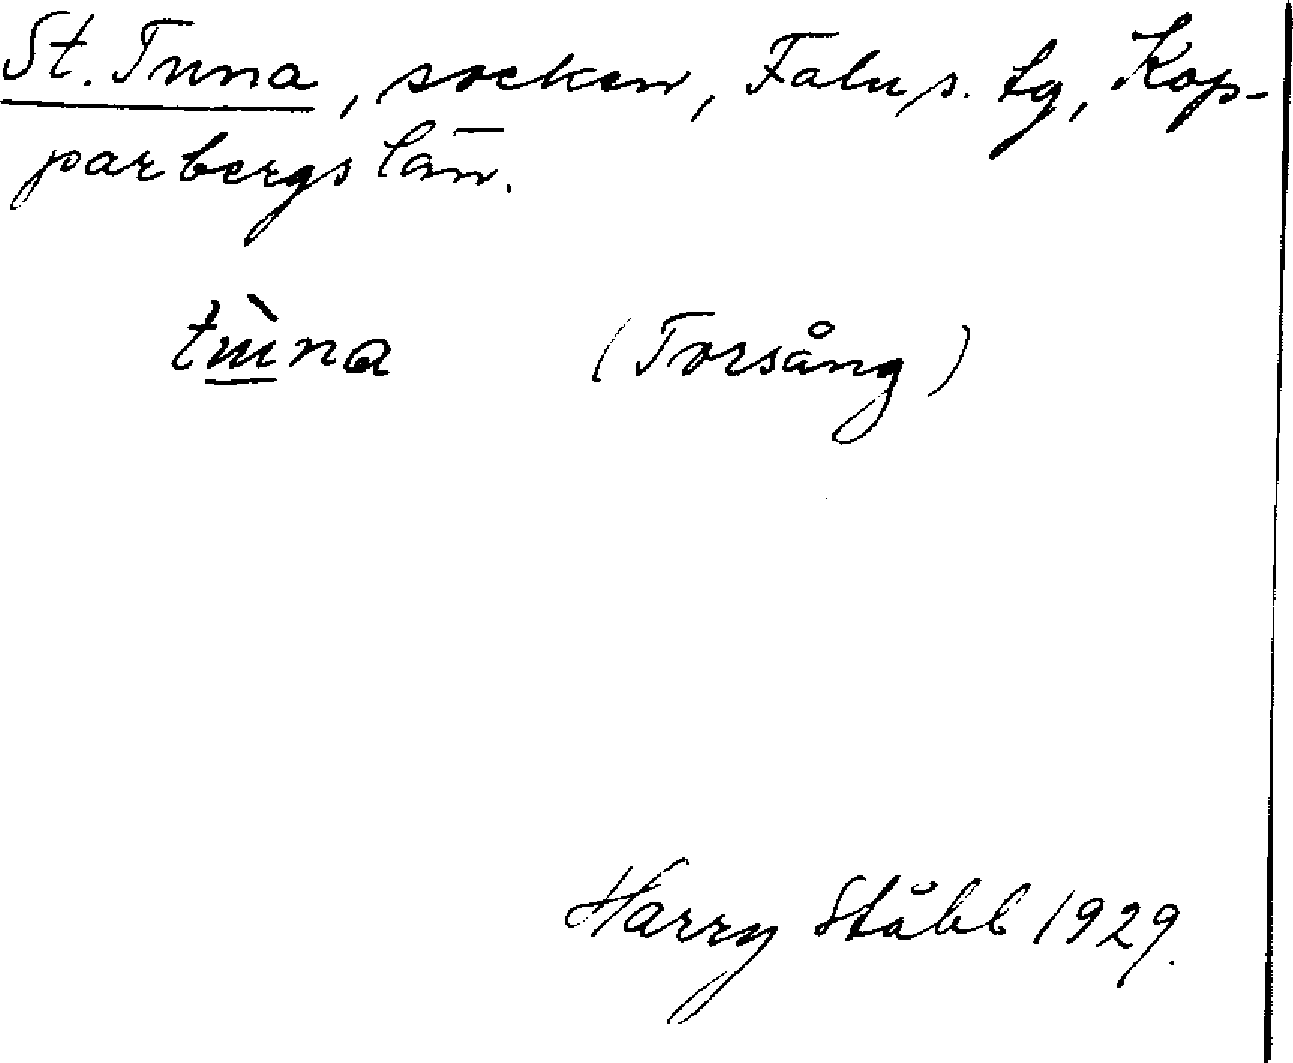 St. Tuna, socken, Falu s. tg, Kop-
parbergs län.
(Torsång)
Harry Ståhl 1929.